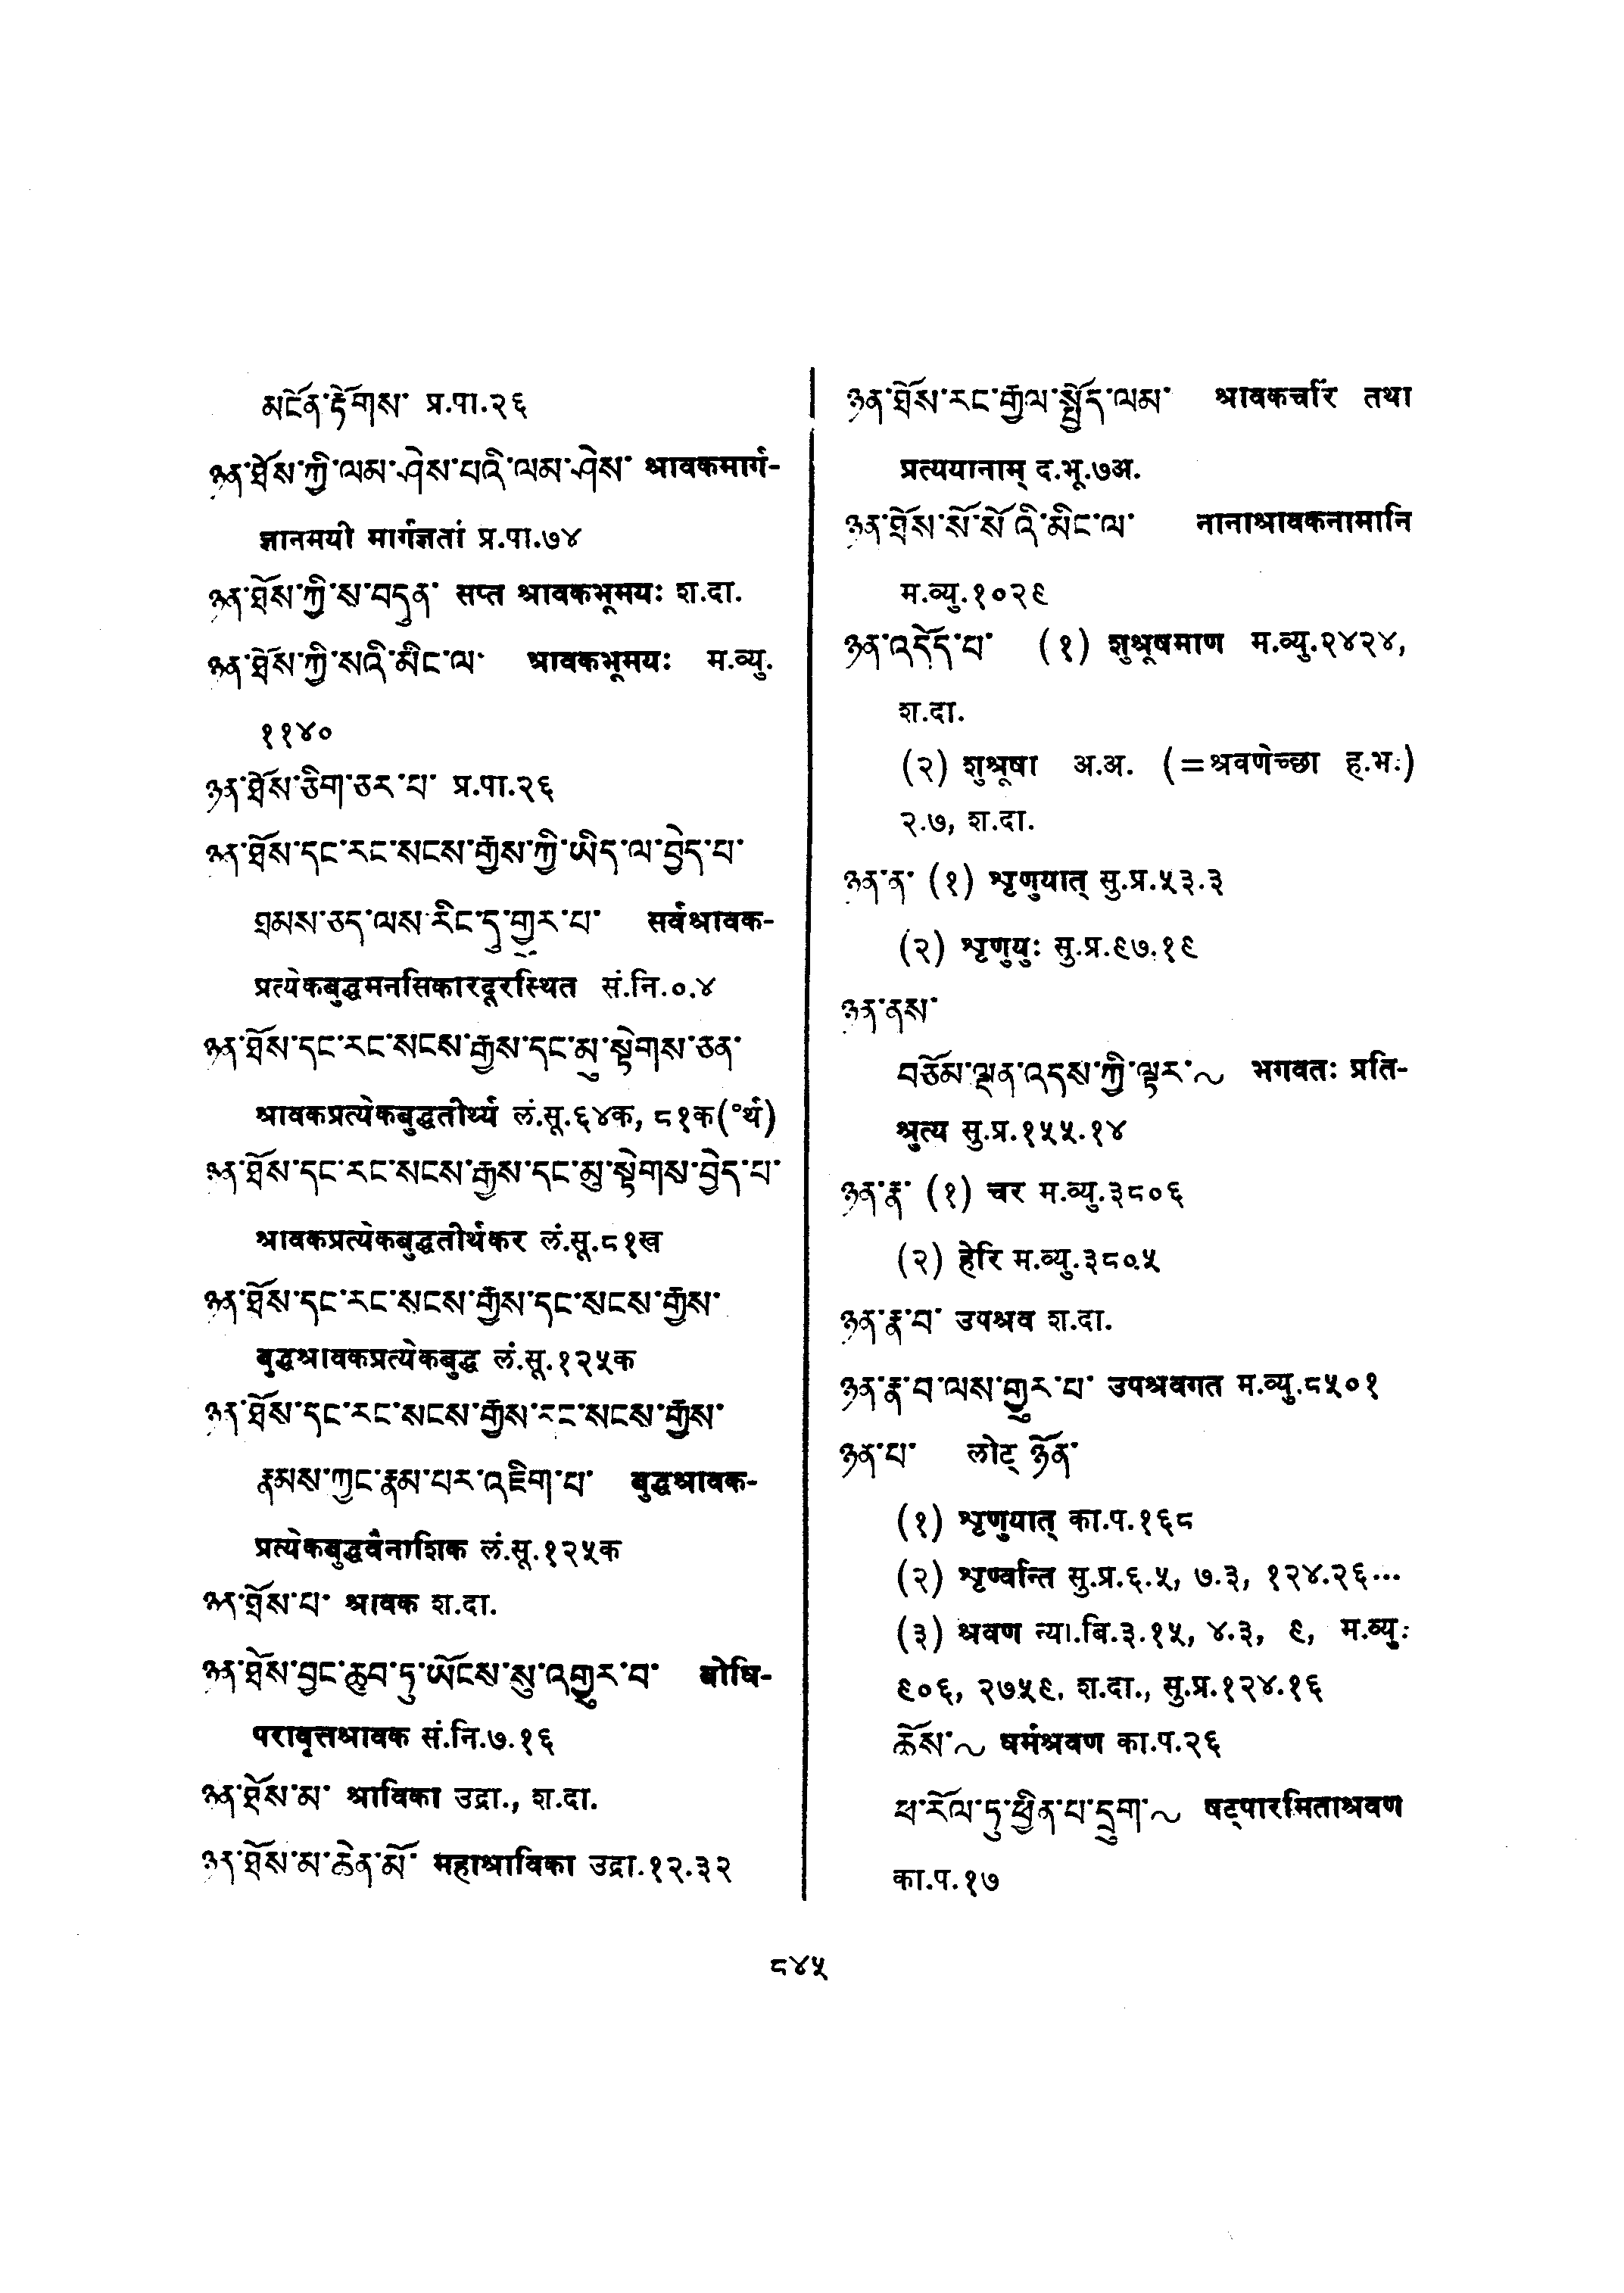 མངོན་རྟོགས་ प्र.पा.२६
ཉན་ཐོས་ཀྱི་ལམ་ཤེས་པའི་ལམ་ཤེས་ श्रावकमार्ग-
ज्ञानमयी मार्गज्ञतां प्र.पा.७४
ཉན་ཐོས་ཀྱི་ས་བདུན་ सप्त श्रावकभूमयः श.दा.
ཉན་ཐོས་ཀྱི་སའི་མིང་ལ་ श्रावकभूमयः म.व्यु.
११४०
ཉན་ཐོས་ཅིག་ཅར་པ་ प्र.पा.२६
ཉན་ཐོས་དང་རང་སངས་རྒྱས་ཀྱི་ཡིད་ལ་བྱེད་པ་
ཐམས་ཅད་ལས་རིང་དུ་གྱུར་པ་ सर्वश्रावक-
प्रत्येकबुद्धमनसिकारदूरस्थित सं.नि.०.४
ཉན་ཐོས་དང་རང་སངས་རྒྱས་དང་མུ་སྟེགས་ཅན་
श्रावकप्रत्येकबुद्धतीर्थ्य लं.सू.६४क, ८१क(°र्थ)
ཉན་ཐོས་དང་རང་སངས་རྒྱས་དང་མུ་སྟེགས་བྱེད་པ་
श्रावकप्रत्येकबुद्धतीर्थकर लं.सू.८१ख
ཉན་ཐོས་དང་རང་སངས་རྒྱས་དང་སངས་རྒྱས་
बुद्धश्रावकप्रत्येकबुद्ध लं.सू.१२५क
ཉན་ཐོས་དང་རང་སངས་རྒྱས་དང་སངས་རྒྱས་
རྣམས་ཀྱང་རྣམ་པར་འཇིག་པ་ बुद्धश्रावक-
प्रत्येकबुद्धवैनाशिक लं.सू.१२५क
ཉན་ཐོས་པ་ श्रावक श.दा.
ཉན་ཐོས་བྱང་ཆུབ་ཏུ་ཡོངས་སུ་འགྱུར་བ་ बोधि-
परावृत्तश्रावक सं.नि.७.१६
ཉན་ཐོས་མ་ श्राविका उद्रा., श.दा.
ཉན་ཐོས་མ་ཆེན་མོ་ महाश्राविका उद्रा.१२.३२
ཉན་ཐོས་རང་རྒྱལ་སྤྱོད་ལམ་ श्रावकचरि तथा
प्रत्ययानाम् द.भू.७अ.
ཉན་ཐོས་སོ་སོའི་མིང་ལ་ नानाश्रावकनामानि
म.व्यु.१०२९
ཉན་འདོད་པ་ (१) शुश्रूषमाण म.व्यु.२४२४,
श.दा.
(२) शुश्रूषा अ.अ. (=श्रवणेच्छा ह.भ.)
२.७, श.दा.
ཉན་ན་ (१) शृणुयात् सु.प्र.५३.३
(२) शृणुयुः सु.प्र.९७.१९
ཉན་ནས་
བཅོམ་ལྡན་འདས་ཀྱི་ལྟར་~ भगवतः प्रति-
श्रुत्य सु.प्र.१५५.१४
ཉན་རྣ་ (१) चर म.व्यु.३८०६
(२) हेरि म.व्यु.३८०५
ཉན་རྣ་བ་ उपश्रव श.दा.
ཉན་རྣ་བ་ལས་གྱུར་པ་ उपश्रवगत म.व्यु.८५०१
ཉན་པ་ लोट् ཉོན་
(१) शृणुयात् का.प.१६८
(२) शृण्वन्ति सु.प्र.६.५, ७.३, १२४.२६...
(३) श्रवण न्या.बि.३.१५, ४.३, ९, म.व्यु.
९०६, २७५९, श.दा., सु.प्र.१२४.१६
ཆོས་~ धर्मश्रवण का.प.२६
ཕ་རོལ་ཏུ་ཕྱིན་པ་དྲུག་~ षट्पारमिताश्रवण
का.प.१७
८४५